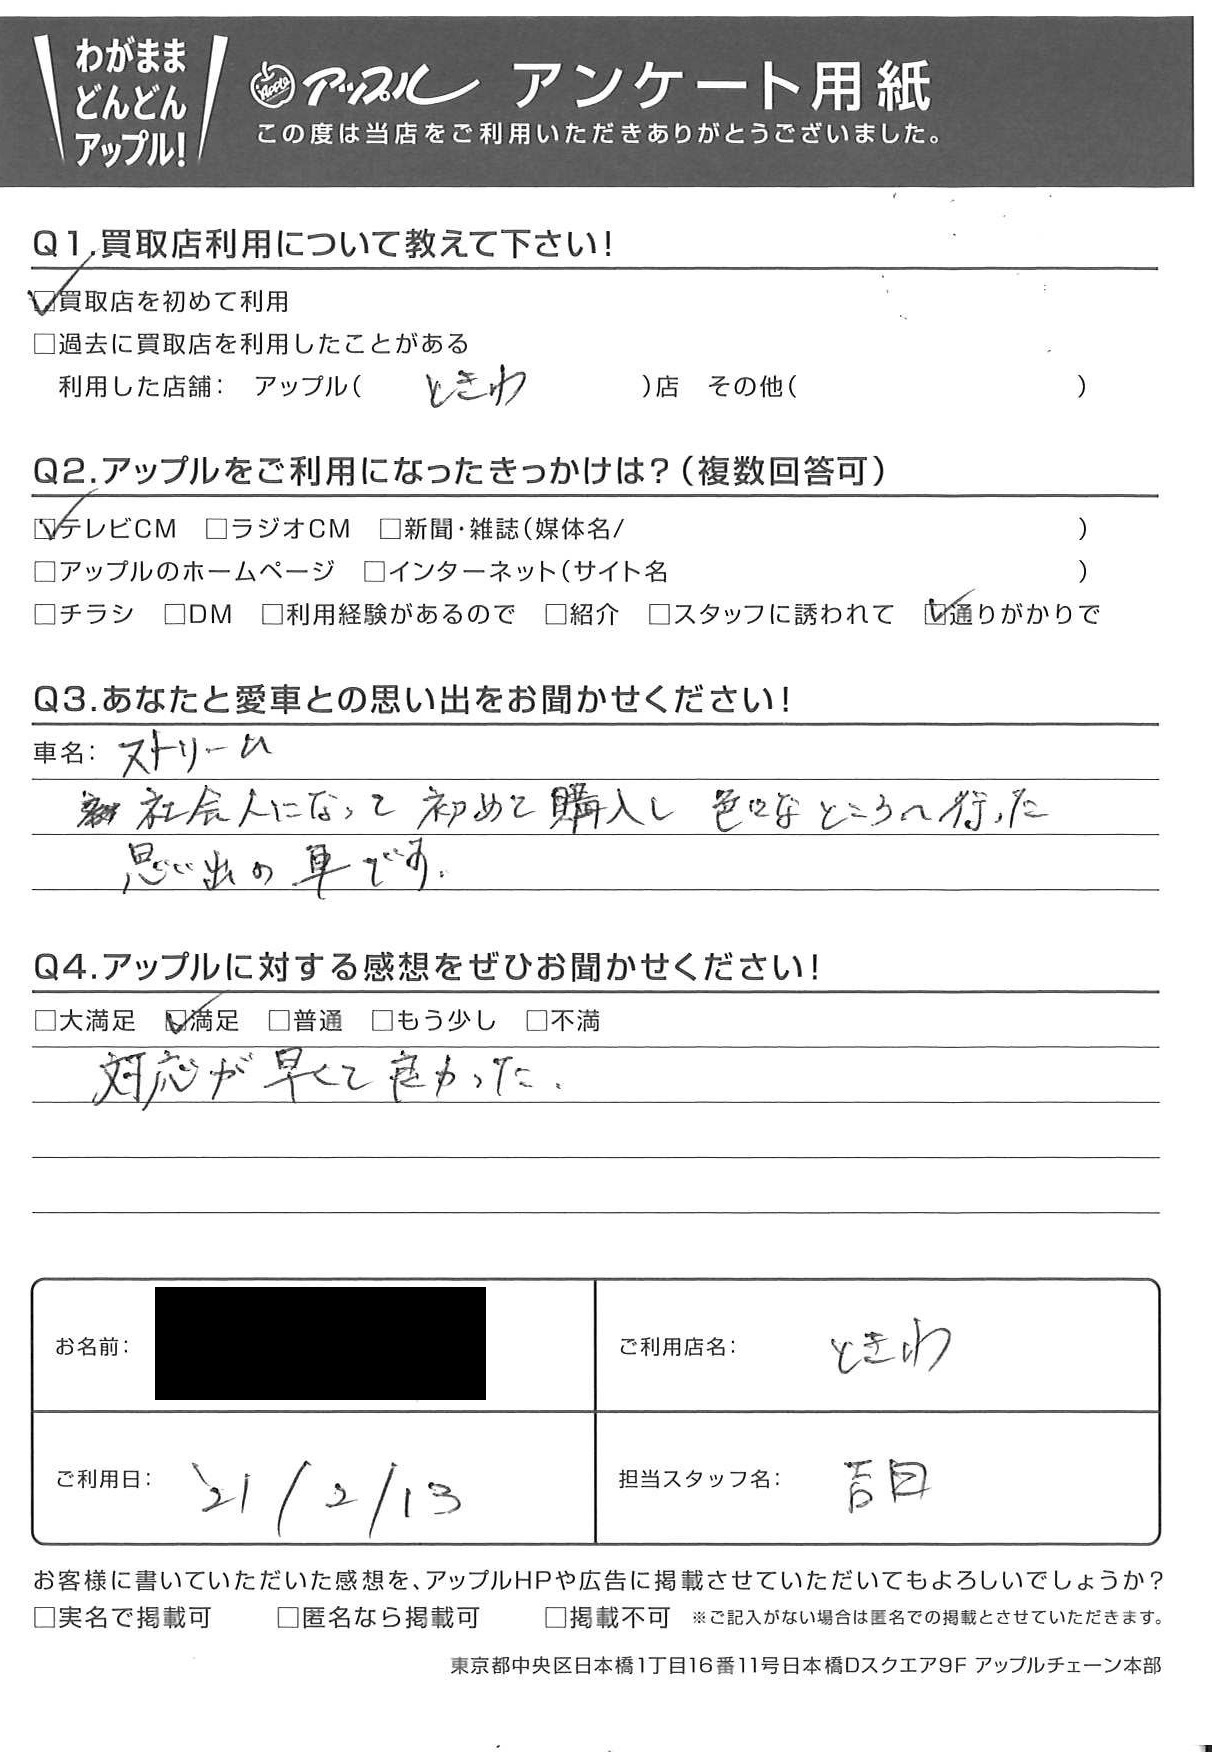 わがまま
どんどん
アップル!
Apple アップル アンケート用紙
この度は当店をご利用いただきありがとうございました。
Q1.買取店利用について教えて下さい!
☑買取店を初めて利用
□過去に買取店を利用したことがある
利用した店舗: アップル( ときわ )店 その他( )
Q2.アップルをご利用になったきっかけは?(複数回答可)
☑テレビCM □ラジオCM □新聞・雑誌(媒体名/ )
□アップルのホームページ □インターネット(サイト名 )
□チラシ □DM □利用経験があるので □紹介 □スタッフに誘われて ☑通りがかりで
Q3.あなたと愛車との思い出をお聞かせください!
車名: ストリーム
社会人になって初めて購入し 色々なところへ行った
思い出の車です.
Q4.アップルに対する感想をぜひお聞かせください!
□大満足 ☑満足 □普通 □もう少し □不満
対応が早くて良かった.
お名前:
ご利用店名: ときわ
ご利用日: '21/2/13
担当スタッフ名: 吉田
お客様に書いていただいた感想を、アップルHPや広告に掲載させていただいてもよろしいでしょうか?
□実名で掲載可 □匿名なら掲載可 □掲載不可 ※ご記入がない場合は匿名での掲載とさせていただきます。
東京都中央区日本橋1丁目16番11号日本橋Dスクエア9F アップルチェーン本部